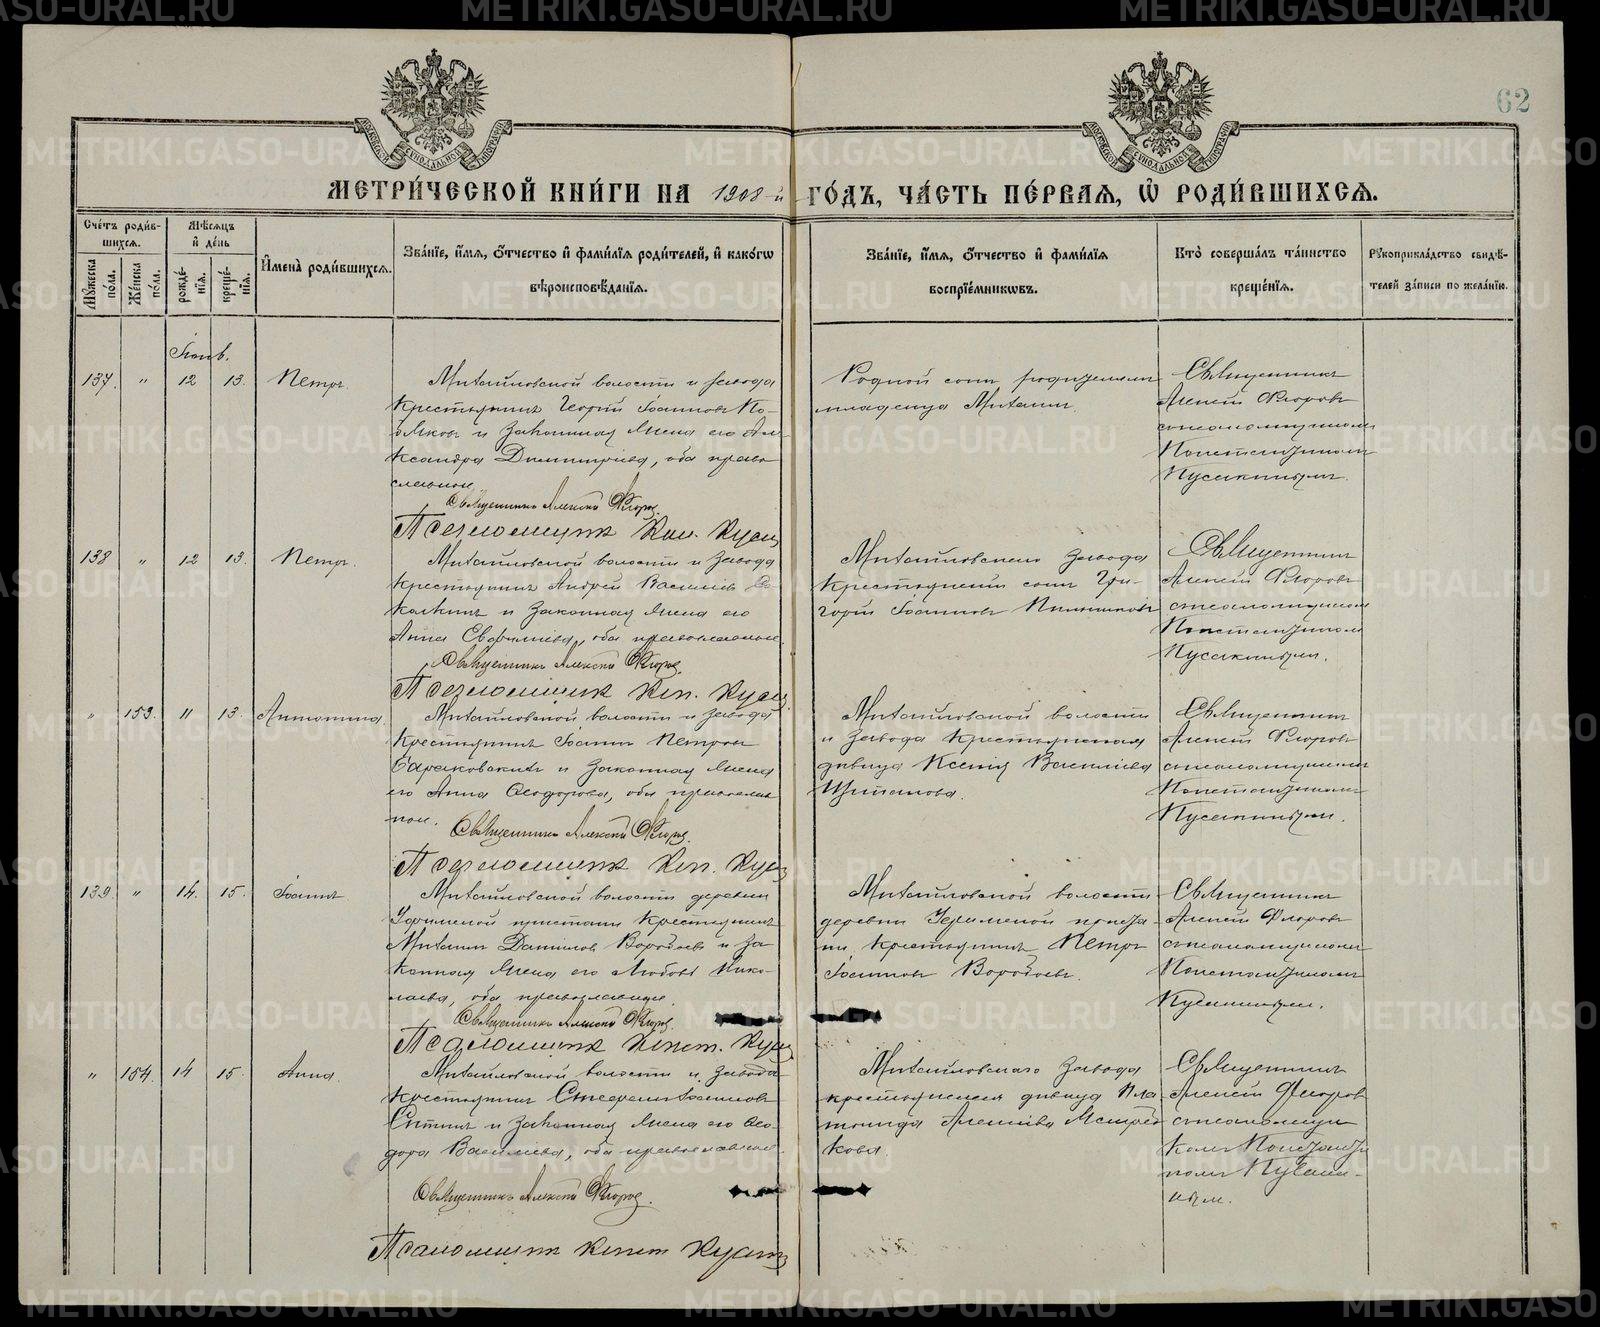 METRIKI.GASO-URAL.RU
62
МОСКОВСКОЙ СѴНОДАЛЬНОЙ ТИПОГРАФІИ
МОСКОВСКОЙ СѴНОДАЛЬНОЙ ТИПОГРАФІИ
МЕТРИ́ЧЕСКОЙ КНИ́ГИ НА 1908-й ГО́ДЪ, ЧА́СТЬ ПЕ́РВАЯ, Ѡ҆ РОДИ́ВШИХСЯ.
Сче́тъ роди́вшихся.
Мꙋ́жеска по́ла.
Же́нска по́ла.
Мѣ́сяцъ и҆ де́нь
рожде́нїя.
креще́нїя.
И҆мена̀ роди́вшихся.
Зва́нїе, и҆́мя, ѻ҆́тчество и҆ фами́лїя роди́телей, и҆ како́гѡ вѣроисповѣ́данїя.
Зва́нїе, и҆́мя, ѻ҆́тчество и҆ фами́лїя воспрїе́мникѡвъ.
Кто̀ соверша́лъ та́инство креще́нїя.
Рꙋкоприкла́дство свидѣ́телей за́писи по жела́нїю.
137. " 12 13. Петръ.
Михайловской волости и завода
крестьянинъ Георгій Іоанновъ
и законная жена его Александра Димитріева, оба православные.
Священникъ Алексій Флоровъ
Псаломщикъ Кон.
Родной сынъ родителей
младенца Михаилъ.
Священникъ
Алексій Флоровъ
съ псаломщикомъ
Константиномъ
138 " 12 13. Петръ.
Михайловской волости и завода
крестьянинъ Андрей Василіевъ
и законная жена его
Анна Евфиміева, оба православные.
Священникъ Алексій Флоровъ
Псаломщикъ Кон.
Михайловскаго завода
крестьянскій сынъ Григорій Іоанновъ
Священникъ
Алексій Флоровъ
съ псаломщикомъ
Константиномъ
" 153. 11 13. Антонина.
Михайловской волости и завода
крестьянинъ Іоаннъ Петровъ
и законная жена
его Анна Ѳеодорова, оба православные.
Священникъ Алексій Флоровъ
Псаломщикъ Кон.
Михайловской волости
и завода крестьянская
дѣвица Ксенія Василіева
Священникъ
Алексій Флоровъ
съ псаломщикомъ
Константиномъ
139. " 14. 15. Іоаннъ
Михайловской волости деревни
пристани крестьянинъ
Михаилъ Даниловъ Воробьевъ и законная жена его Любовь Николаева, оба православные.
Священникъ Алексій Флоровъ
Псаломщикъ Конст.
Михайловской волости
деревни пристани, крестьянинъ Петръ
Іоанновъ Воробьевъ.
Священникъ
Алексій Флоровъ
съ псаломщикомъ
Константиномъ
" 154. 14 15. Анна.
Михайловской волости и завода
крестьянинъ Іоанновъ
и законная жена его Ѳеодора Василіева, оба православные.
Священникъ Алексій Флоровъ.
Псаломщикъ Конст
Михайловскаго завода
крестьянская дѣвица Платонида Алексіева
Священникъ
Алексій Флоровъ
съ псаломщикомъ Константиномъ